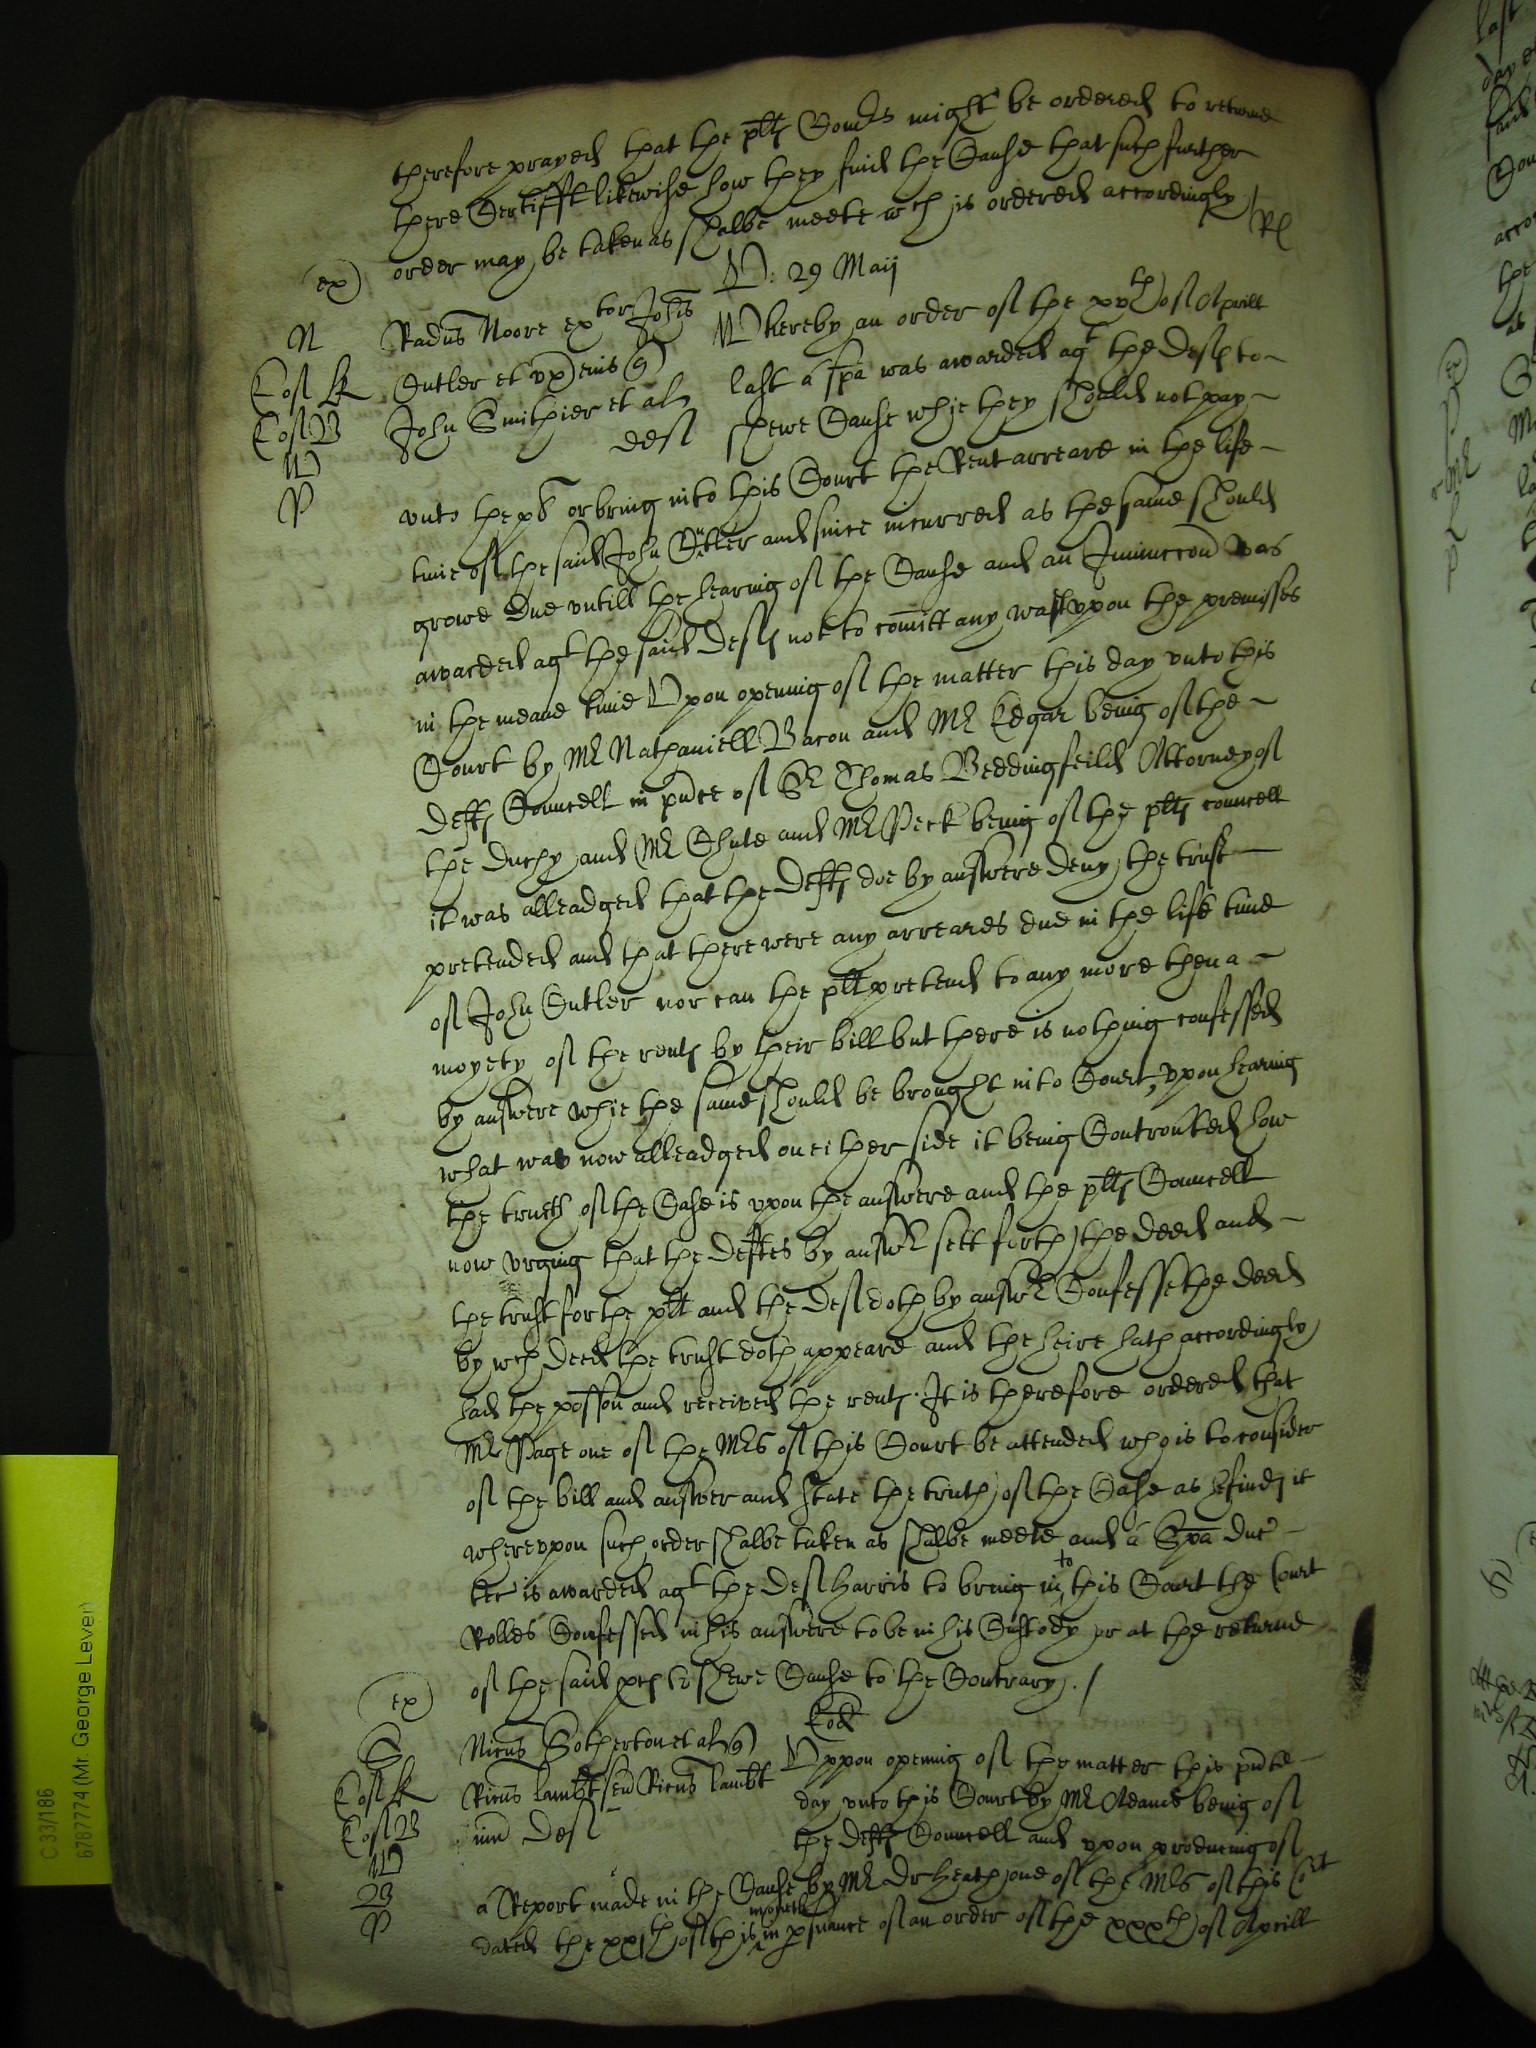 therefore prayed that the plts Comrs might be ordered to retorne
there Certifft likewise how they find the Cause that such further
order may be taken as shalbe meete wch is ordered accordingly Rl
ex)
N: 29 Maij
N
Radus Moore extor Johis
Whereby an order of the xvth of Aprill
Cutler et vx eius
last a spa was awarded agt the Defts to
John Smithier et al
def
shewe Cause whie they should not pay
W
P
vnto the plt or bring into this Court the Rent arreare in the life
time of the said John Cutler and since incurred as the same should
growe due vntill the hearing of the Cause and an Iniunccon was
awarded agt the said Defts not to comitt any wast vpon the premisses
in the meane time Vpon opening of the matter this day vnto this
Court by Mr Nathaniell Bacon and Mr Edgar being of the
Defts Councell in pnce of Sr Thomas Beddingfeild Attorney of
the Duchy and Mr Chute and Mr Peck being of the plts councell
it was alleadged that the Defts doe by answere deny the trust
pretended and that there were any arreares due in the life time
of John Cutler nor can the plt pretend to any more then a
moyety of the rents by their bill but there is nothing confessed
by answere whie the same should be brought into Court, vpon hearing
what was now alleadged on either side it being Controuted how
the trueth of the Case is vpon the answere and the plts Councell
now vrging that the deftes by answr sett forth the deed and
the trust for the plt and the Def doth by answr Confesse the deed
by wch deed the trust doth appeare and the heire hath accordingly
had the posson and received the rents. It is therefore ordered that
Mr Page one of the Mrs of this Court be attended who is to consider
of the bill and answer and state the truth of the Case as he finds it
wherevpon such order shalbe taken as shalbe meete and a Spa duc
tec is awarded agt the Def Harris to bring into this Court the Court
Rolles Confessed in his answere to be in his Custody or at the retorne
of the said pces to shewe Cause to the Contrary. /
ex)
Eod
S
Nicus Sotherton et al
Vppon opening of the matter this pnte
Ricus Lambt sen Ricus Lambt
day vnto this Court by Mr Adams being of
iun Def
the defts Councell and vpon producing of
W
B
P
a Report made in the Cause by Mr Dr Heath one of the Mrs of this Cort
dated the xxjth of this moneth in psuance of an order of the xxxth of Aprill
C 33/186
6787774 (Mr. George Lever)